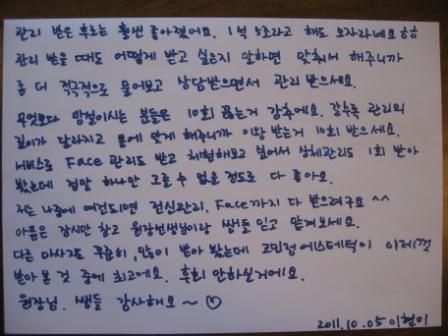 관리 받은 후로는 훨씬 좋아졌어요. 1석 5조라고 해도 모자라네요 ㅎㅎ
관리 받을 때도 어떻게 받고 싶은지 말하면 맞춰서 해주니까
좀 더 적극적으로 물어보고 상담받으면서 관리 받으세요.
무엇보다 망설이시는 분들은 10회 끊는거 강추에요. 갈수록 관리의
깊이가 달라지고 몸에 맞게 해주니까 이왕 받는거 10회 받으세요.
서비스로 Face 관리도 받고 체험해보고 싶어서 상체관리도 1회 받아
봤는데 정말 하나만 고를 수 없을 정도로 다 좋아요.
저는 나중에 여건되면 전신관리, Face까지 다 받으려구요 ^^
아픔은 잠시만 참고 원장선생님이랑 쌤들 믿고 맡겨보세요.
다른 마사지도 꾸준히, 많이 받아 봤는데 고민정에스테틱이 이제껏
받아 본 것 중에 최고에요. 후회 안하실거에요.
원장님, 쌤들 감사해요 ~ ♡
2011.10.05 이현이